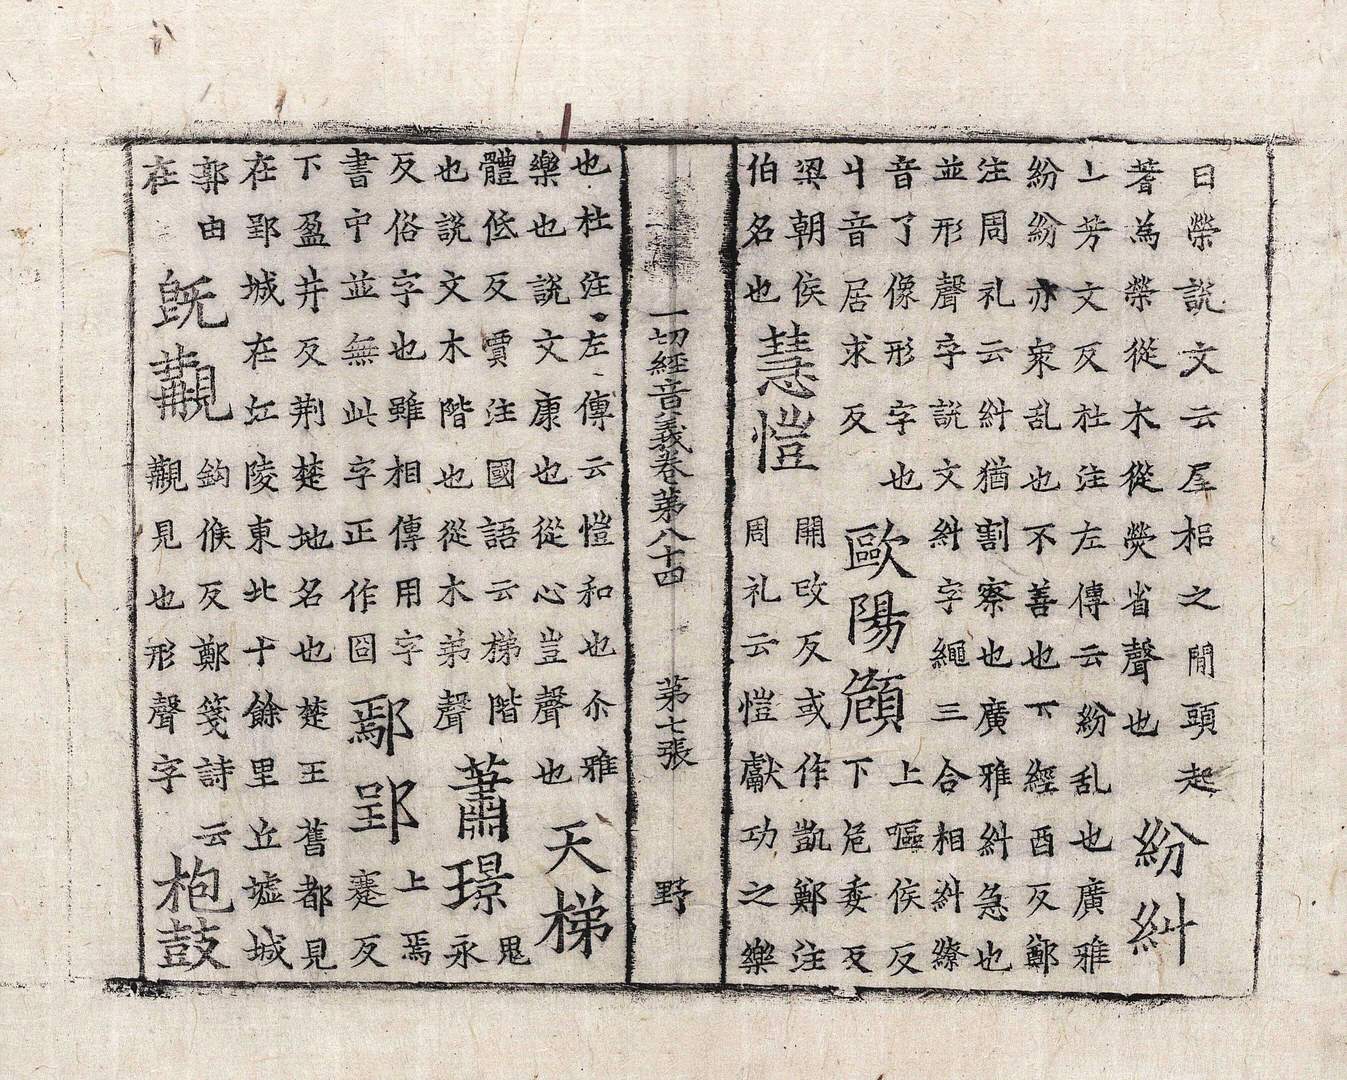 曰榮說文云屋梠之閒頭起
著為榮從木從熒省聲也
紛糾
上芳文反杜注左傳云紛乱也廣雅
紛紛亦衆乱也不善也下經酉反鄭
注周礼云糾猶割察也廣雅糾急也
並形聲字說文糾字繩三合相糾繚
音了像形字也
丩音居求反
歐陽頠
上嘔侯反
下危委反
梁朝侯
伯名也
慧愷
開改反或作凱鄭注
周礼云愷獻功之樂
一切經音義卷第八十四 第七張 野
也杜注左傳云愷和也尒雅
樂也說文康也從心豈聲也
天梯
體低反賈注國語云梯階
也說文木階也從木弟聲
蕭璟
鬼
永
反俗字也雖相傳用字
書中並無此字正作囧
鄢郢
上焉
蹇反
下盈井反荆楚地名也楚王舊都見
在郢城在江陵東北十餘里丘墟城
郭由
在
既覯
鈎候反鄭箋詩云
覯見也形聲字
枹鼓